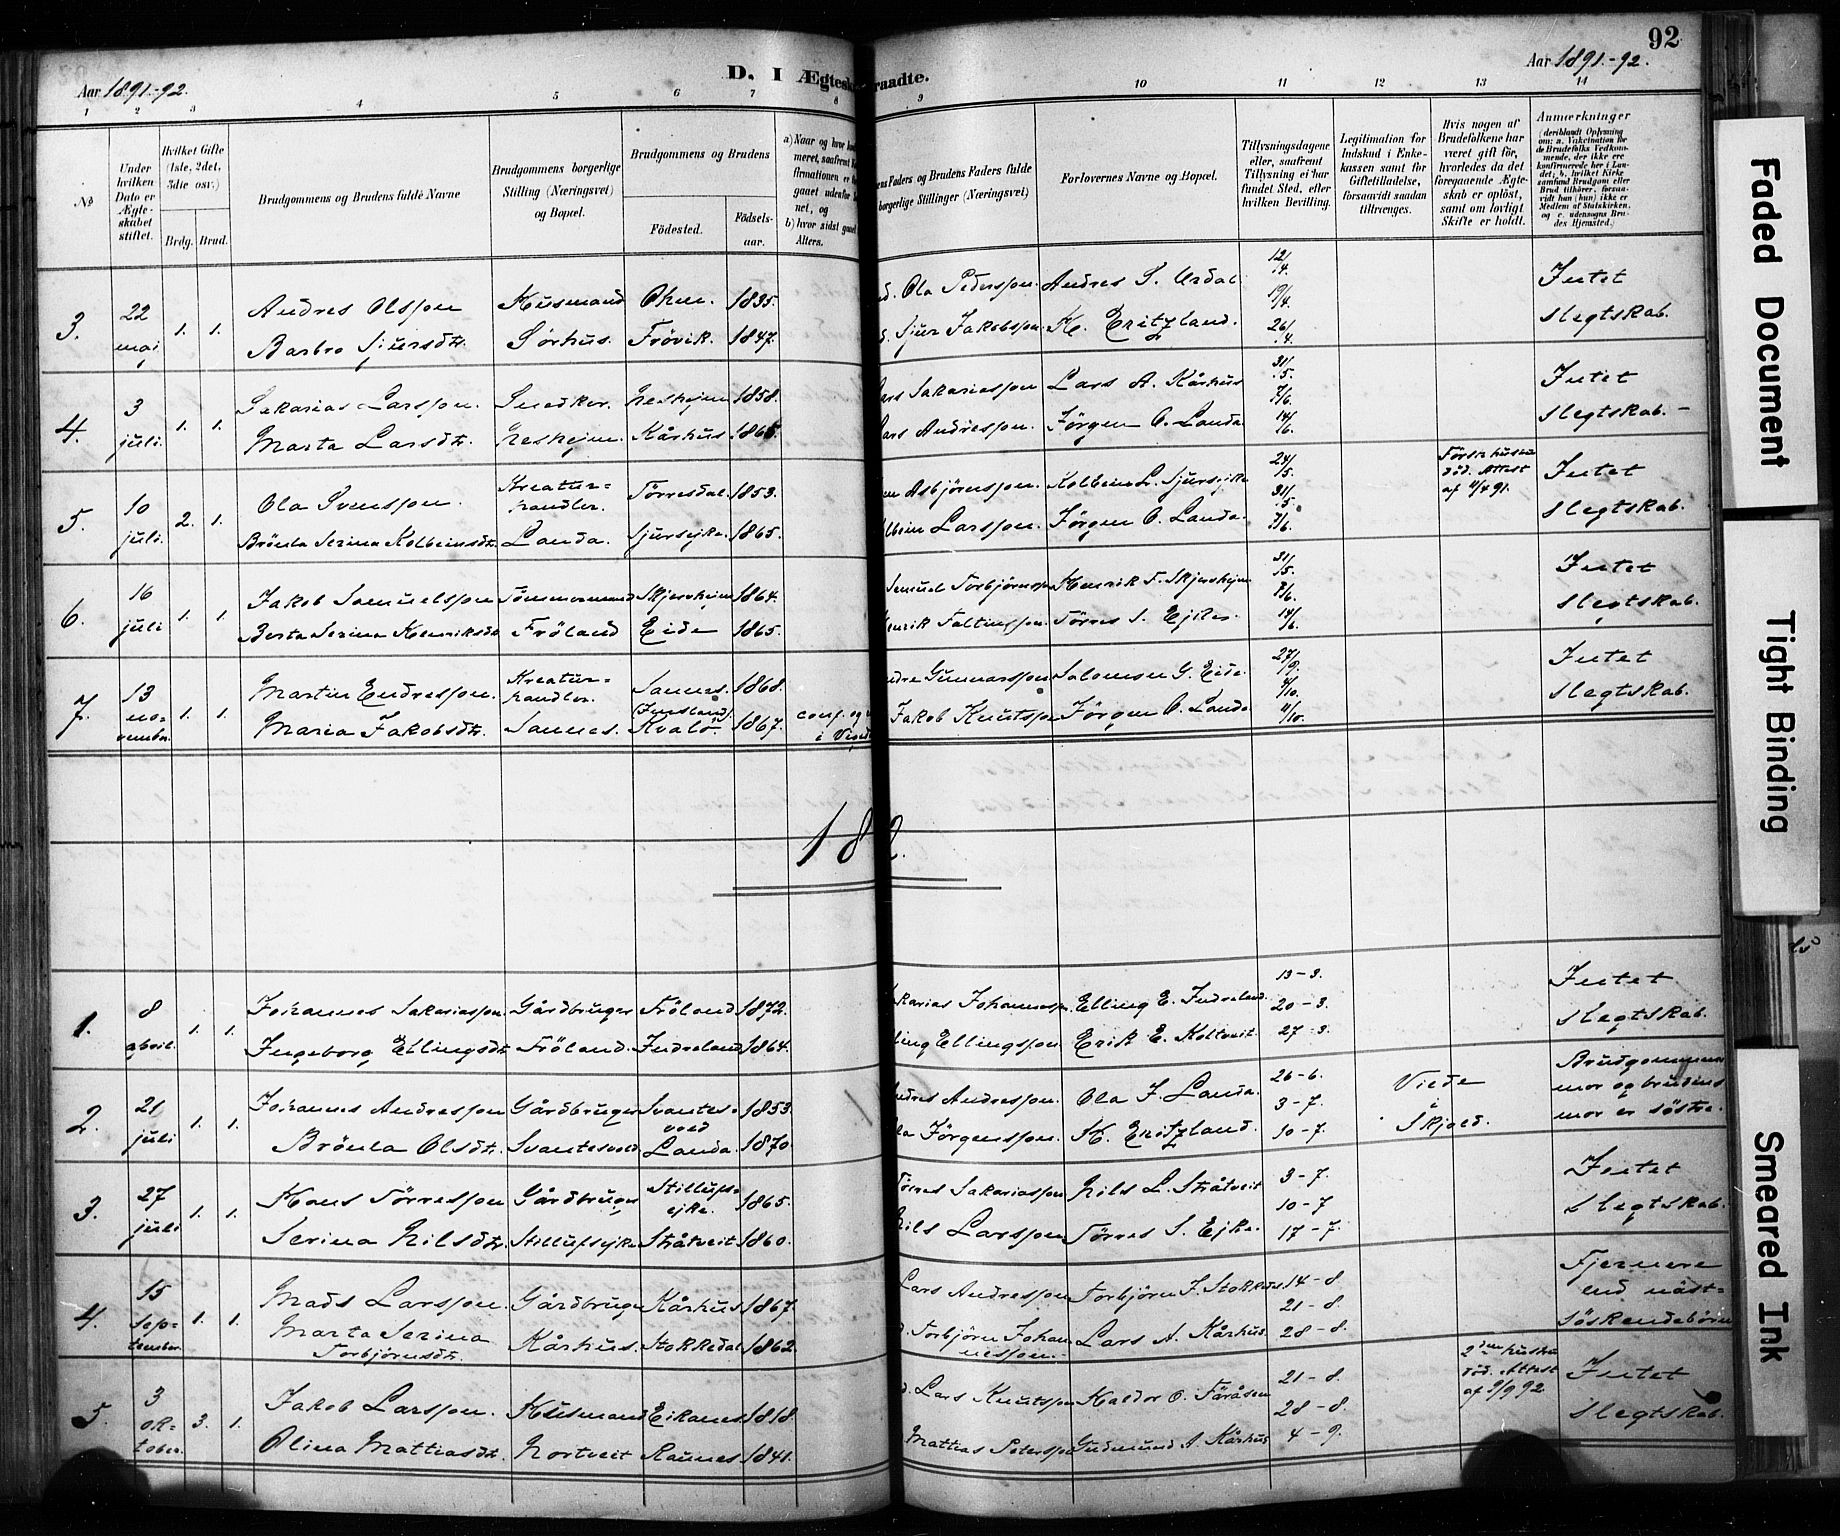 92
Aar 1891-92.
D. I Ægtesk raadte.
Aar 1891-92.
1 2 3 4 5 6 7 8 9 10 11 12 13 14
No
Under hvilken Dato er Ægteskabet stiftet.
Hvilket Gifte (1ste, 2det, 3die osv.)
Brdg. Brud.
Brudgommens og Brudens fulde Navne
Brudgommens borgerlige Stilling (Næringsvei) og Bopæl.
Brudgommens og Brudens
Fødested. Fødselsaar.
a) Naar og hvor
b) hvor sidst
Alters.
ens Faders og Brudens Faders fulde
borgerlige Stillinger (Næringsvei)
Forlovernes Navne og Bopæl.
Tillysningsdagene eller, saafremt Tillysning ei har fundet Sted, efter hvilken Bevilling.
Legitimation for Indskud i Enkekassen samt for Giftetilladelse, forsaavidt saadan tiltrænges.
Hvis nogen af Brudefolkene har været gift før, hvorledes da det foregaaende Ægteskab er opløst, samt om lovligt Skifte er holdt.
Anmærkninger
(deriblandt Oplysning om: a. Vakcination for de Brudefolks Vedkommende, der ikke ere konfirmerede her i Landet; b. hvilket Kirkesamfund Brudgom eller Brud tilhører, forsaavidt han (hun) ikke er Medlem af Statskirken, og c. udensogns Brudes Hjemsted.)
3. 22 mai 1. 1. Andres Olsson Husmand 1835. Ola Pedersson Andres S. Urdal 12/4. Intet
Barbro Sjursdtr. Sørhus. Frøvik. 1847. Sjur Jakobsson K. Eritzland. 19/4. 26/4. Slegtskab.
4. 3 juli. 1. 1. Sakarias Larsson. Snedker. Nesheim 1858. Lars Sakariasson Lars A. Kårhus 31/5. Intet
Marta Larsdtr. Nesheim. Kårhus 1865. Lars Andresson. Jörgen O. Landa. 7/6. 14/6. Slegtskab. -
5. 10 juli. 2. 1. Ola Svensson. Kreaturhandler. Torresdal 1853. Asbjörnsson. Kolbein L. Sjursejke 24/5. Første hustru död. Attest af 11/4 91. Intet
Brönla Serina Kolbeinsdtr. Landa. Sjursejke. 1865. Kolbein Larsson. Jörgen O. Landa. 31/5. 7/6. Slegtskab.
6. 16 juli 1. 1. Jakob Samuelsson Tömmermand Skjersheim 1864. Samuel Torbjörnsson Henrik T. Skjersheim 31/5. Intet
Berta Serina Henriksdtr. Fröland Eide 1865. Henrik Faltinsson. Törres S. Ejke. 7/6. 14/6. Slegtskab.
7. 13 november. 1. 1. Martin Endresson. Kreaturhandler. Sannes. 1868. Endre Gunnarsson Salomon G. Eide 27/9. Intet
Maria Jakobsdtr. Sannes. Kvalö 1867. conf. og Jakob Knutsson Jörgen O. Landa 4/10. 11/10. Slegtskab.
18 2.
1. 8 april. 1. 1. Johannes Sakariasson. Gårdbruger Fröland 1872. Sakarias Johannesson Elling E. Indreland. 13-3. Intet
Ingeborg Ellingsdtr. Fröland. Indreland 1864. Elling Ellingsson. Erik E. Koltveit 20-3. 27-3. Slegtskab.
2. 21 juli 1. 1. Johannes Andresson Gårdbruger Svantesvold 1853. Andres Andresson. Ola J. Landa. 26-6. Viede Brudgommens mor og brudens
Brönla Olsdtr. Svantesvold Landa. 1870 Ola Jörgensson. K. Eritzland. 3-7. 10-7. Skjold. mor er söstre.
3. 27 juli 1. 1. Hans Törresson Gårdbruger Stillufsejke. 1865. Törres Sakariasson Nils L. Stråtveit 3-7. Intet
Serina Nilsdtr. Stillufsejke Stråtveit 1860. Nils Larsson Törres S. Ejke. 10-7 17-7. Slegtskab.
4. 15 September. 1. 1. Mads Larsson Gårdbruger Kårhus 1867. Lars Andresson Torbjörn J. Stokkedal 14-8. Fjernere end näst-
Marta Serina Torbjörnsdtr. Kårhus. Stokkedal 1862. Torbjörn Johannesson. Lars A. Kårhus. 21-8. 28-8. Söskendebörn
5. 3 oktober. 3. 1. Jakob Larsson. Husmand Eikanes 1818. Lars Knutsson Haldor O. Färåsen 21-8. 2den hustru död. Attest af 9/9 92 Intet
Olina Mattiasdtr. Nortveit Raunes 1841. Mattias Petersson Gudmund A. Kårhus 28-8. 4-9. Slegtskab.
Faded Document
Tight Binding
Smeared Ink